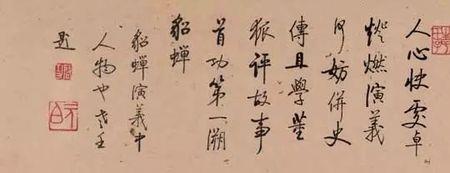 人心快處卓
燈燃演義
何妨併史
傳且學董
狐評故事
首功第一溯
貂蟬
貂蟬演義中
人物也
題